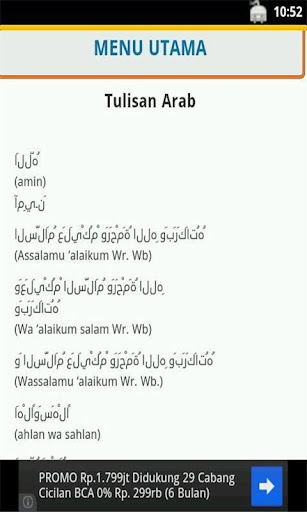 10:52
MENU UTAMA
Tulisan Arab
اَللّهُ
(amin)
آمِ.ي.نَ
اَلسَّلاَمُ عَلَيْكُمْ وَرَحْمَةُ اللهِ وَبَرَكَاتُهُ
(Assalamu ‘alaikum Wr. Wb)
وَعَلَيْكُمْ السَّلاَمُ وَرَحْمَةُ اللهِ
وَبَرَكَاتُهُ
(Wa ‘alaikum salam Wr. Wb)
وَ السَّلاَمُ عَلَيْكُمْ وَرَحْمَةُ اللهِ وَبَرَكَاتُهُ
(Wassalamu ‘alaikum Wr. Wb.)
أَهْلاً وَسَهْلاً
(ahlan wa sahlan)
PROMO Rp.1.799jt Didukung 29 Cabang
Cicilan BCA 0% Rp. 299rb (6 Bulan)